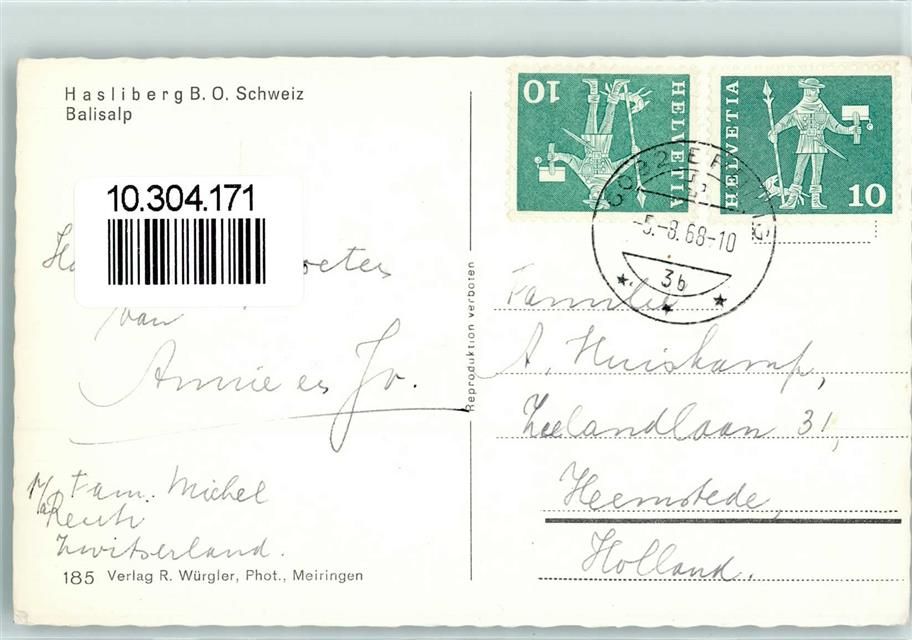 Hasliberg B.O. Schweiz
Balisalp
10.304.171
van
Annie en Jo.
p/a Fam. Michel
Reuti
Zwitserland.
185 Verlag R. Würgler, Phot., Meiringen
Reproduktion verboten
10 HELVETIA
HELVETIA 10
-5.-8.68-10
3b
Familie
A. Huiskamp,
Zeelandlaan 31,
Heemstede,
Holland.